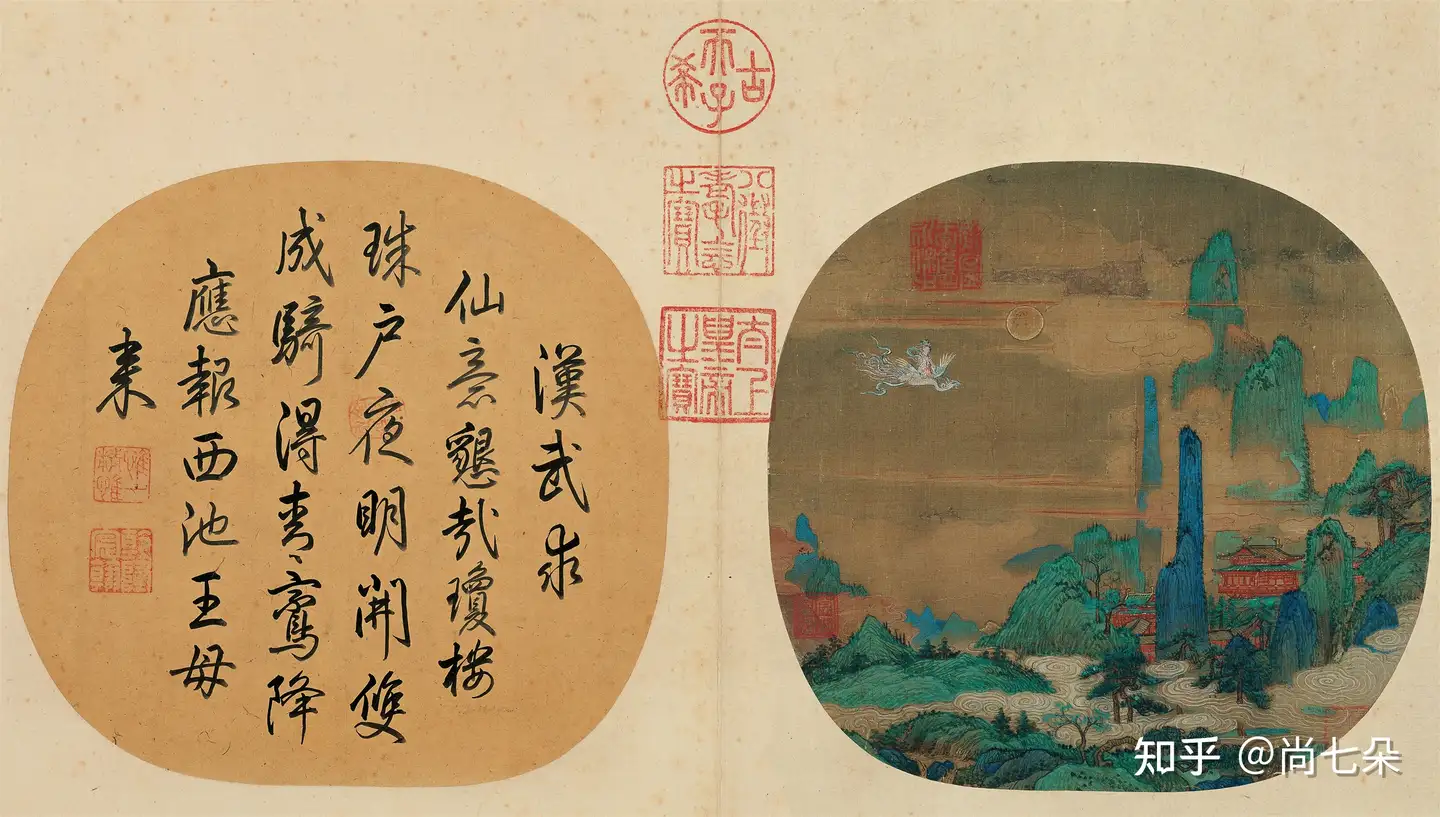 古希天子
八徵耄念之寶
太上皇帝之寶
漢武求
仙意懇哉瓊樓
珠戶夜明開雙
成騎得青鸞降
應報西池王母
來
知乎 @尚七朵